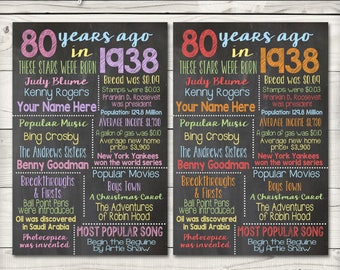 80 years ago
in 1938
THESE STARS WERE BORN
Judy Blume
Kenny Rogers
Your Name Here
Bread was $0.09
Stamps were $0.03
Franklin D. Roosevelt
was president
Population: 129.8 Million
Popular Music
Bing Crosby
The Andrews Sisters
Benny Goodman
A gallon of gas was $0.10
Average new home
price $3,900
New York Yankees
won the world series
Breakthroughs
& Firsts
Ball Point Pens
were introduced
Oil was discovered
in Saudi Arabia
Photocopier
was invented
Popular Movies
Boys Town
A Christmas Carol
The Adventures
of Robin Hood
MOST POPULAR SONG
Begin the Beguine
by Artie Shaw
80 years ago
in 1938
THESE STARS WERE BORN
Judy Blume
Kenny Rogers
Your Name Here
Bread was $0.09
Stamps were $0.03
Franklin D. Roosevelt
was president
Population: 129.8 Million
Popular Music
Bing Crosby
The Andrews Sisters
Benny Goodman
A gallon of gas was $0.10
Average new home
price $3,900
New York Yankees
won the world series
Breakthroughs
& Firsts
Ball Point Pens
were introduced
Oil was discovered
in Saudi Arabia
Photocopier
was invented
Popular Movies
Boys Town
A Christmas Carol
The Adventures of
Robin Hood
MOST POPULAR SONG
Begin the Beguine
by Artie Shaw